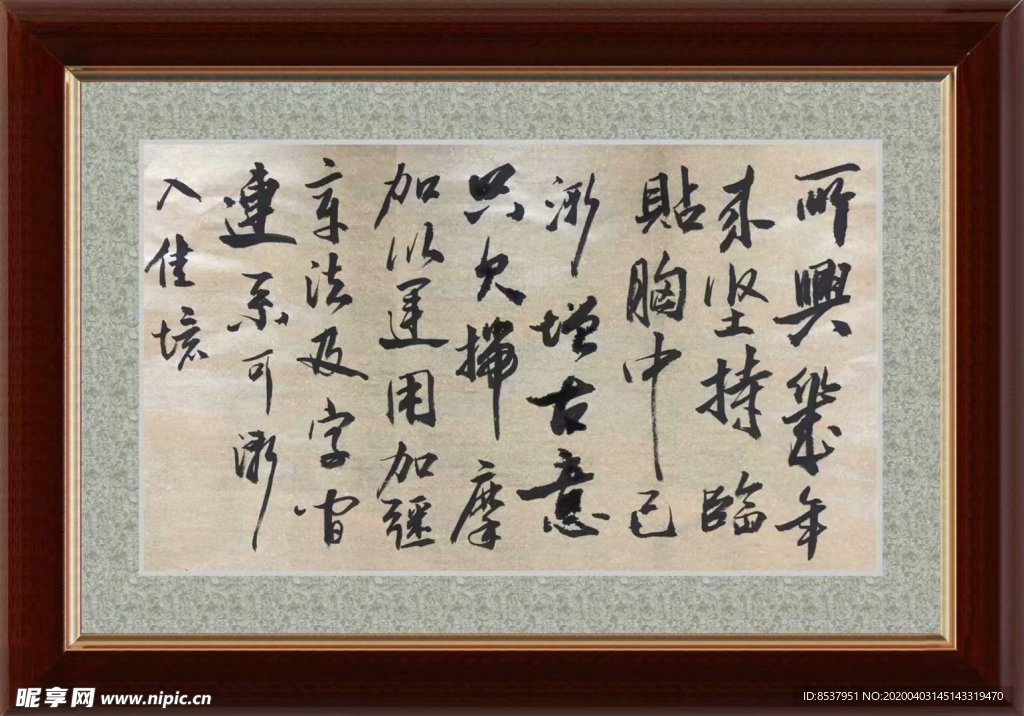 所興幾年
来坚持臨
貼胸中已
漸增古意
只欠揣摩
加以運用加强
章法及字间
連系可漸
入佳境
昵享网 www.nipic.cn
ID:8537951 NO:20200403145143319470